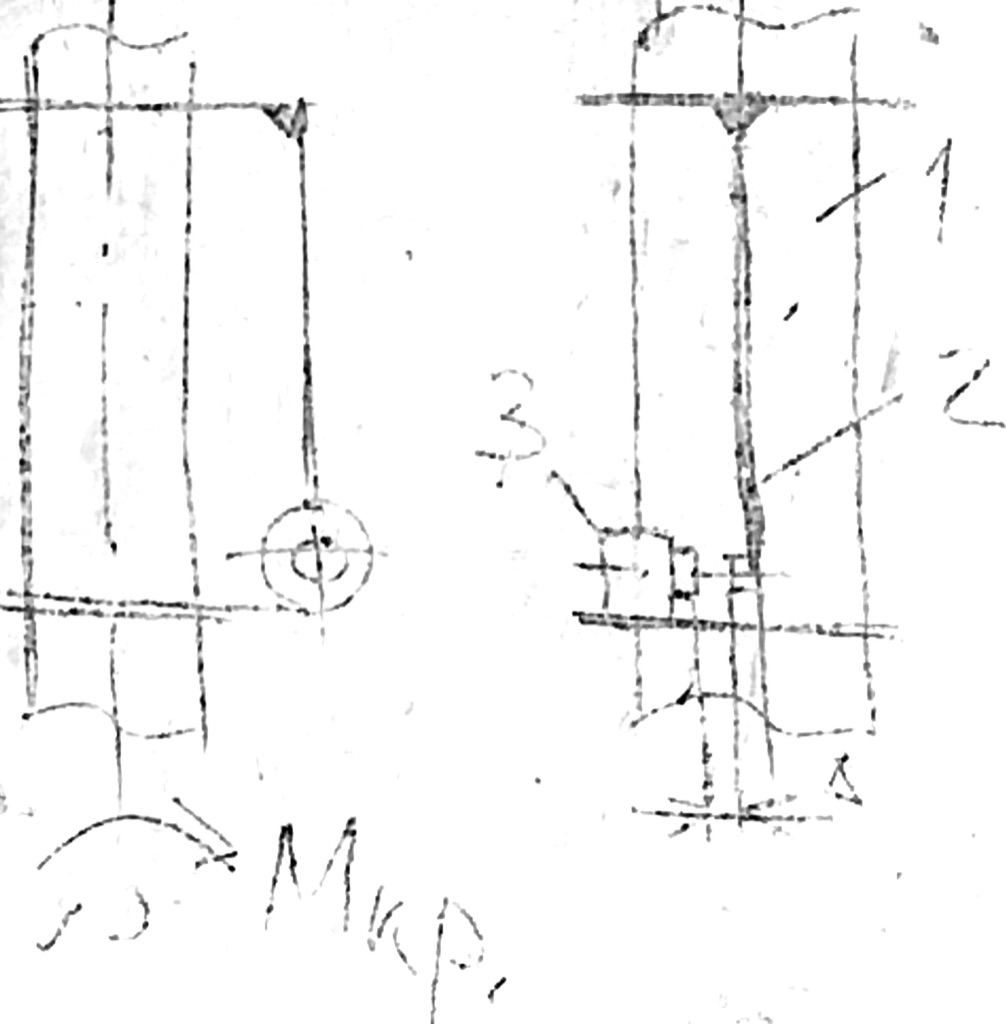 1
2
3
Мкр.